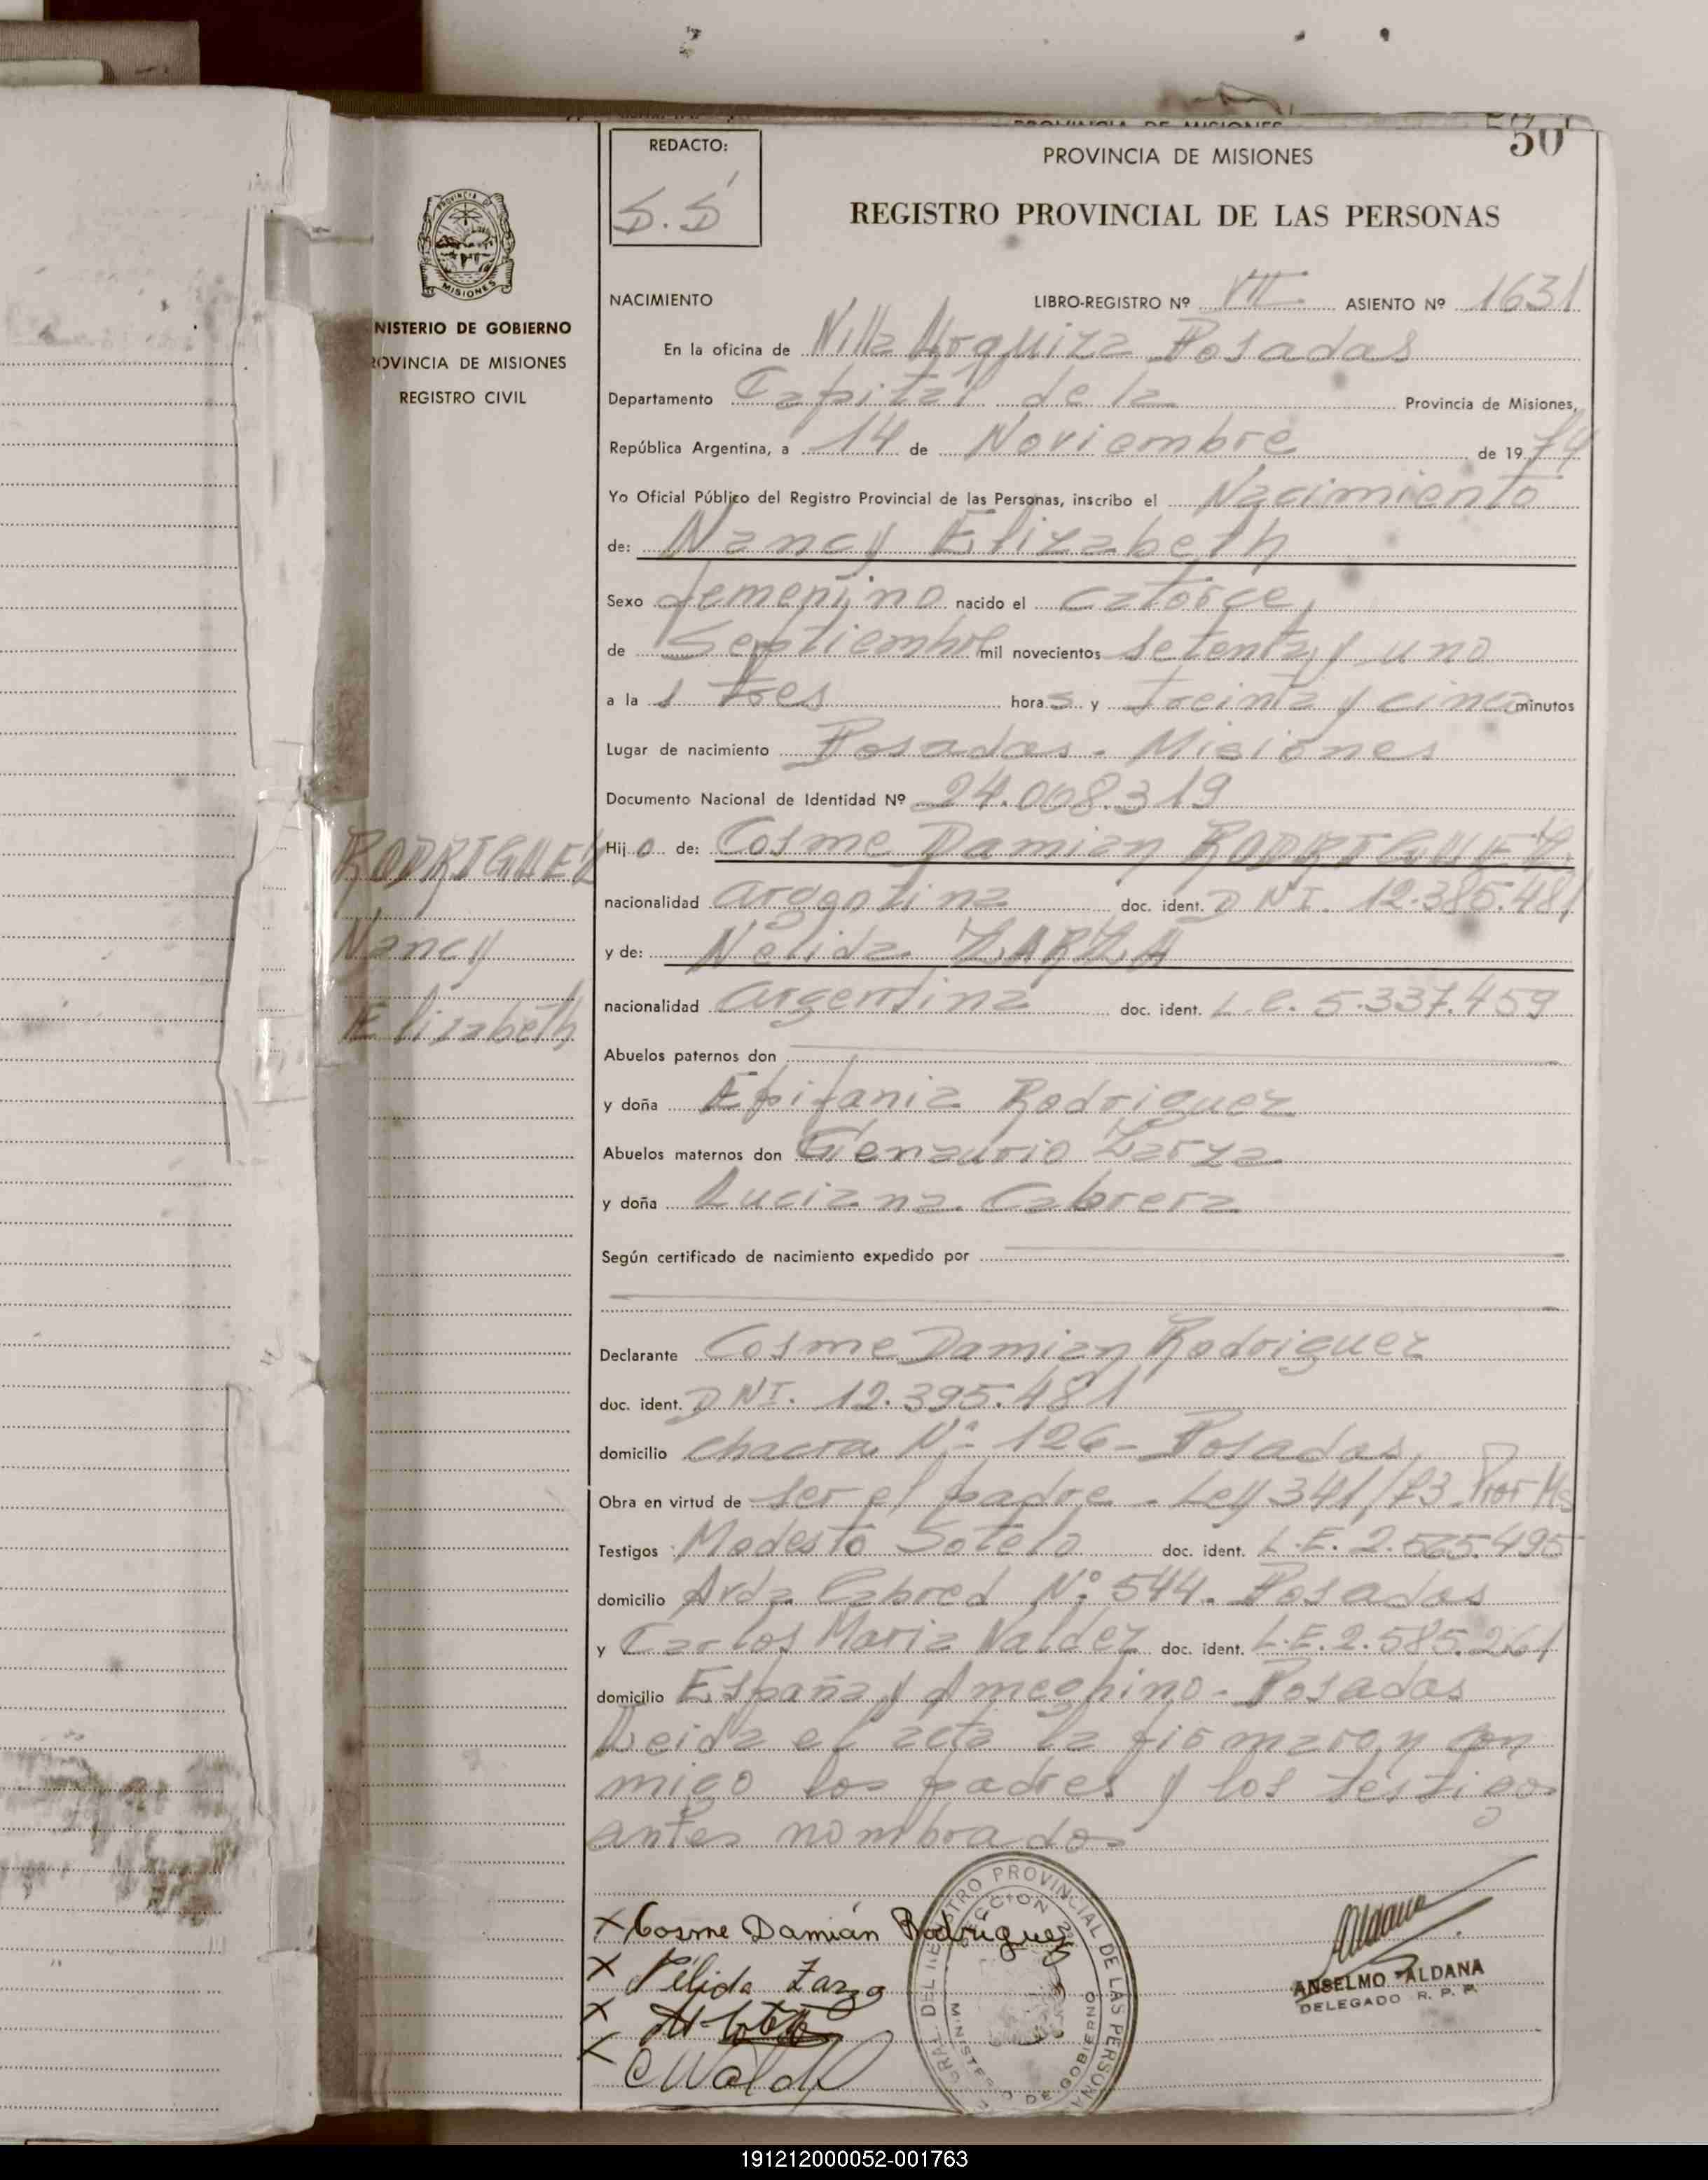 PROVINCIA DE MISIONES
50
REDACTO:
S.S
PROVINCIA DE MISIONES
REGISTRO PROVINCIAL DE LAS PERSONAS
MISIONES
NISTERIO DE GOBIERNO
ROVINCIA DE MISIONES
REGISTRO CIVIL
NACIMIENTO LIBRO-REGISTRO Nº VII ASIENTO Nº 1631
En la oficina de Villa Urquiza Posadas
Departamento Capital de la Provincia de Misiones,
República Argentina, a 14 de Noviembre de 1974
Yo Oficial Público del Registro Provincial de las Personas, inscribo el Nacimiento
de: Nancy Elizabeth
Sexo femenino nacido el catorce
de Septiembre mil novecientos setenta y uno
a la s tres horas y treinta y cinco minutos
Lugar de nacimiento Posadas - Misiones
Documento Nacional de Identidad Nº 24.008.319
RODRIGUEZ
Nancy
Elizabeth
Hijo de: Cosme Damian RODRIGUEZ
nacionalidad argentina doc. ident. DNI. 12.385.481
y de: Nelida ZARZA
nacionalidad argentina doc. ident. L.C. 5.337.459
Abuelos paternos don
y doña Epifania Rodriguez
Abuelos maternos don Zarza
y doña Luciana Cabrera
Según certificado de nacimiento expedido por
Declarante Cosme Damian Rodriguez
doc. ident. DNI. 12.395.481
domicilio chacra Nº 126 - Posadas
Obra en virtud de ser el padre - Ley 341/
Testigos: Modesto Sotelo doc. ident. L.E. 2.565.495
domicilio Avda Cabred Nº 544. Posadas
y Carlos Maria Valdez doc. ident. L.E. 2.585.261
domicilio España y Ameghino - Posadas
Leida el acta la firmaron con
migo los padres y los testigos
antes nombrados
X Cosme Damián Rodríguez
X Nélida Zarza
X
X C Wald
REGISTRO PROVINCIAL DE LAS PERSONAS
MINISTERIO DE GOBIERNO
Aldana
ANSELMO ALDANA
DELEGADO R. P. P.
191212000052-001763